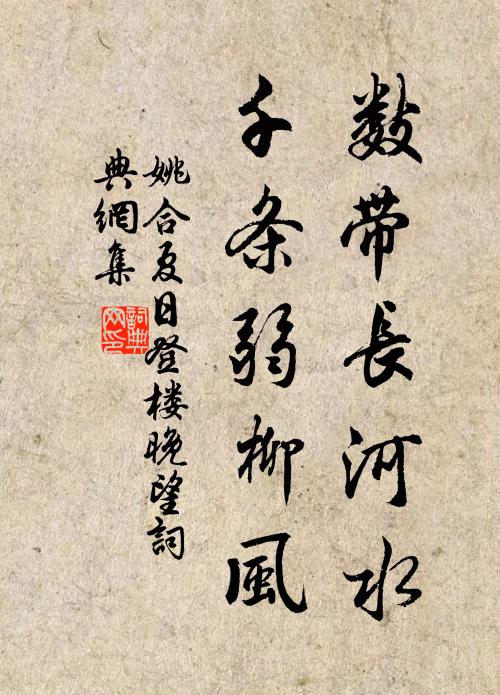 數带長河水
千条弱柳風
姚合夏日登楼晚望詞
典網集
詞典
网印